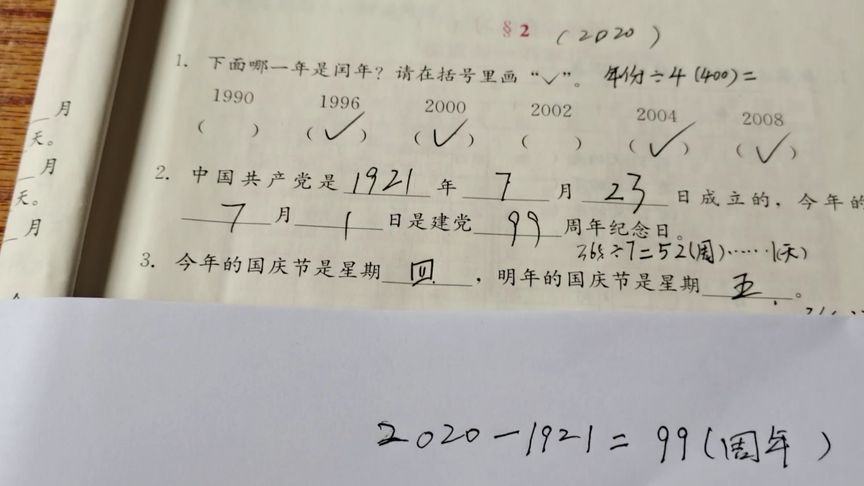 §2 (2020)
1. 下面哪一年是闰年？请在括号里画“✓”。 年份÷4(400)=
1990 1996 2000 2002 2004 2008
( ) (✓) (✓) ( ) (✓) (✓)
2. 中国共产党是 1921 年 7 月 23 日成立的，今年的
7 月 1 日是建党 99 周年纪念日。
365÷7=52(周)……1(天)
3. 今年的国庆节是星期 四 ，明年的国庆节是星期 五 。
月
天。
月
天。
月
2020-1921=99(周年)